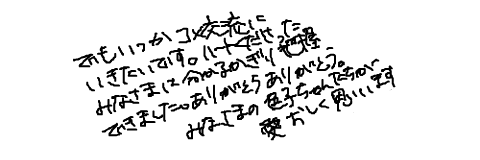 でもいつかコメ交流に
いきたいです。ハートくださった
みなさまは分かるかぎり把握
できました。ありがとうありがとう。
みなさまの色子ちゃんたちが
愛おしく思います